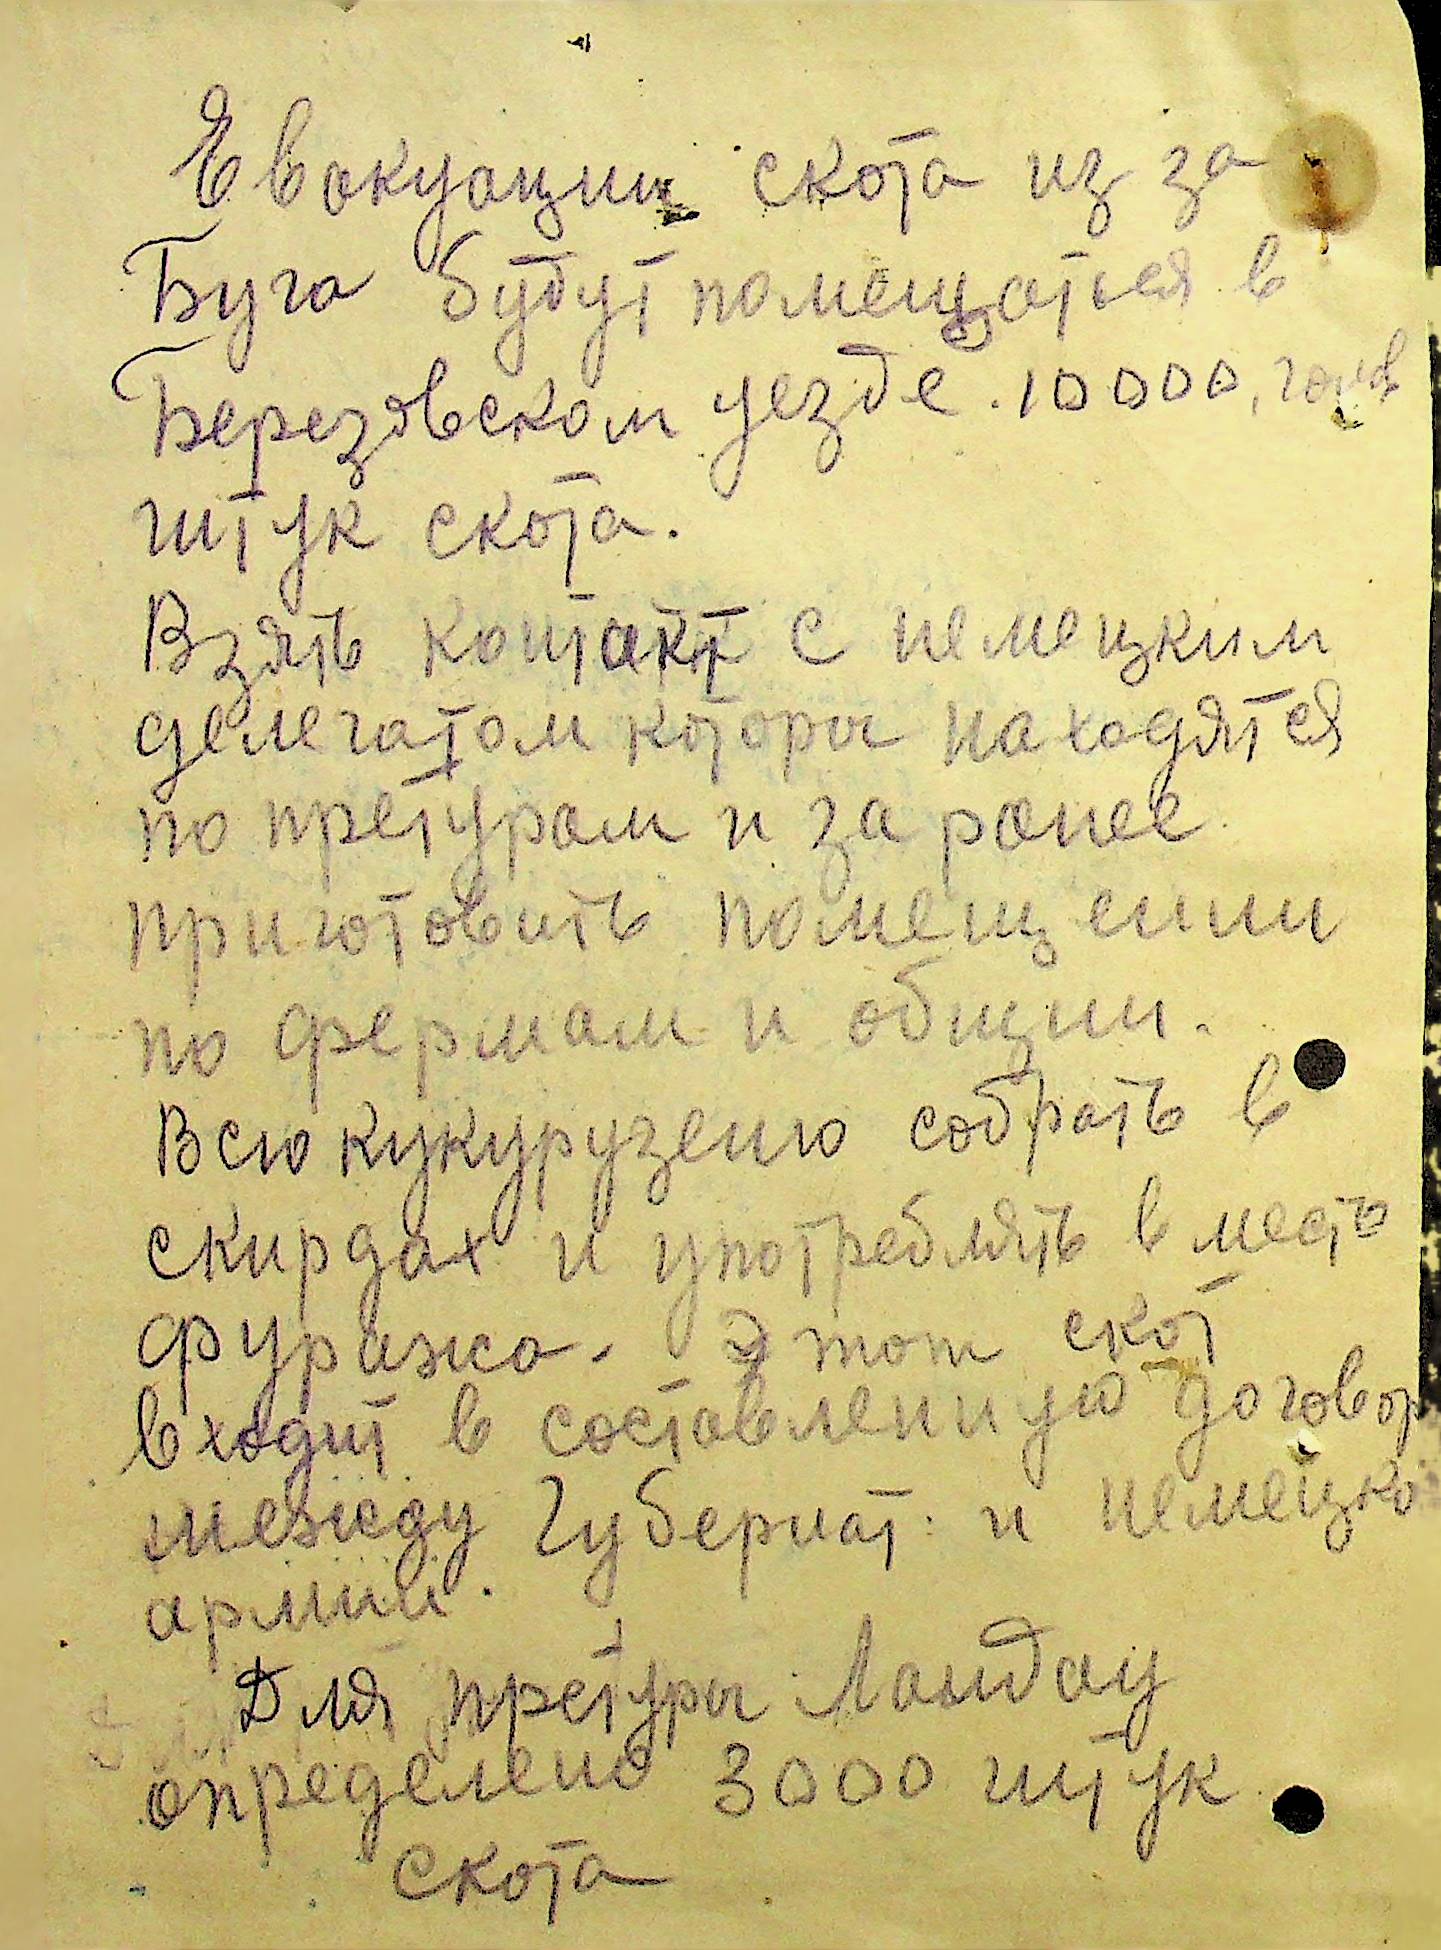 Евакуации скота из за
Буга будут помещаться в
Березовском уезде. 10000, голов
штук скота.
Взять контакт с немецким
делегатом которы находятся
по претурам и за ранее
приготовить помещении
по фермам и общин.
Всю кукурузеню собрать в
скирдах и употреблять в месть
фуража. Этот скот
входит в составленную договор
между Губернат. и немецко
армии.
Для претуры Ландау
определено 3000 штук
скота